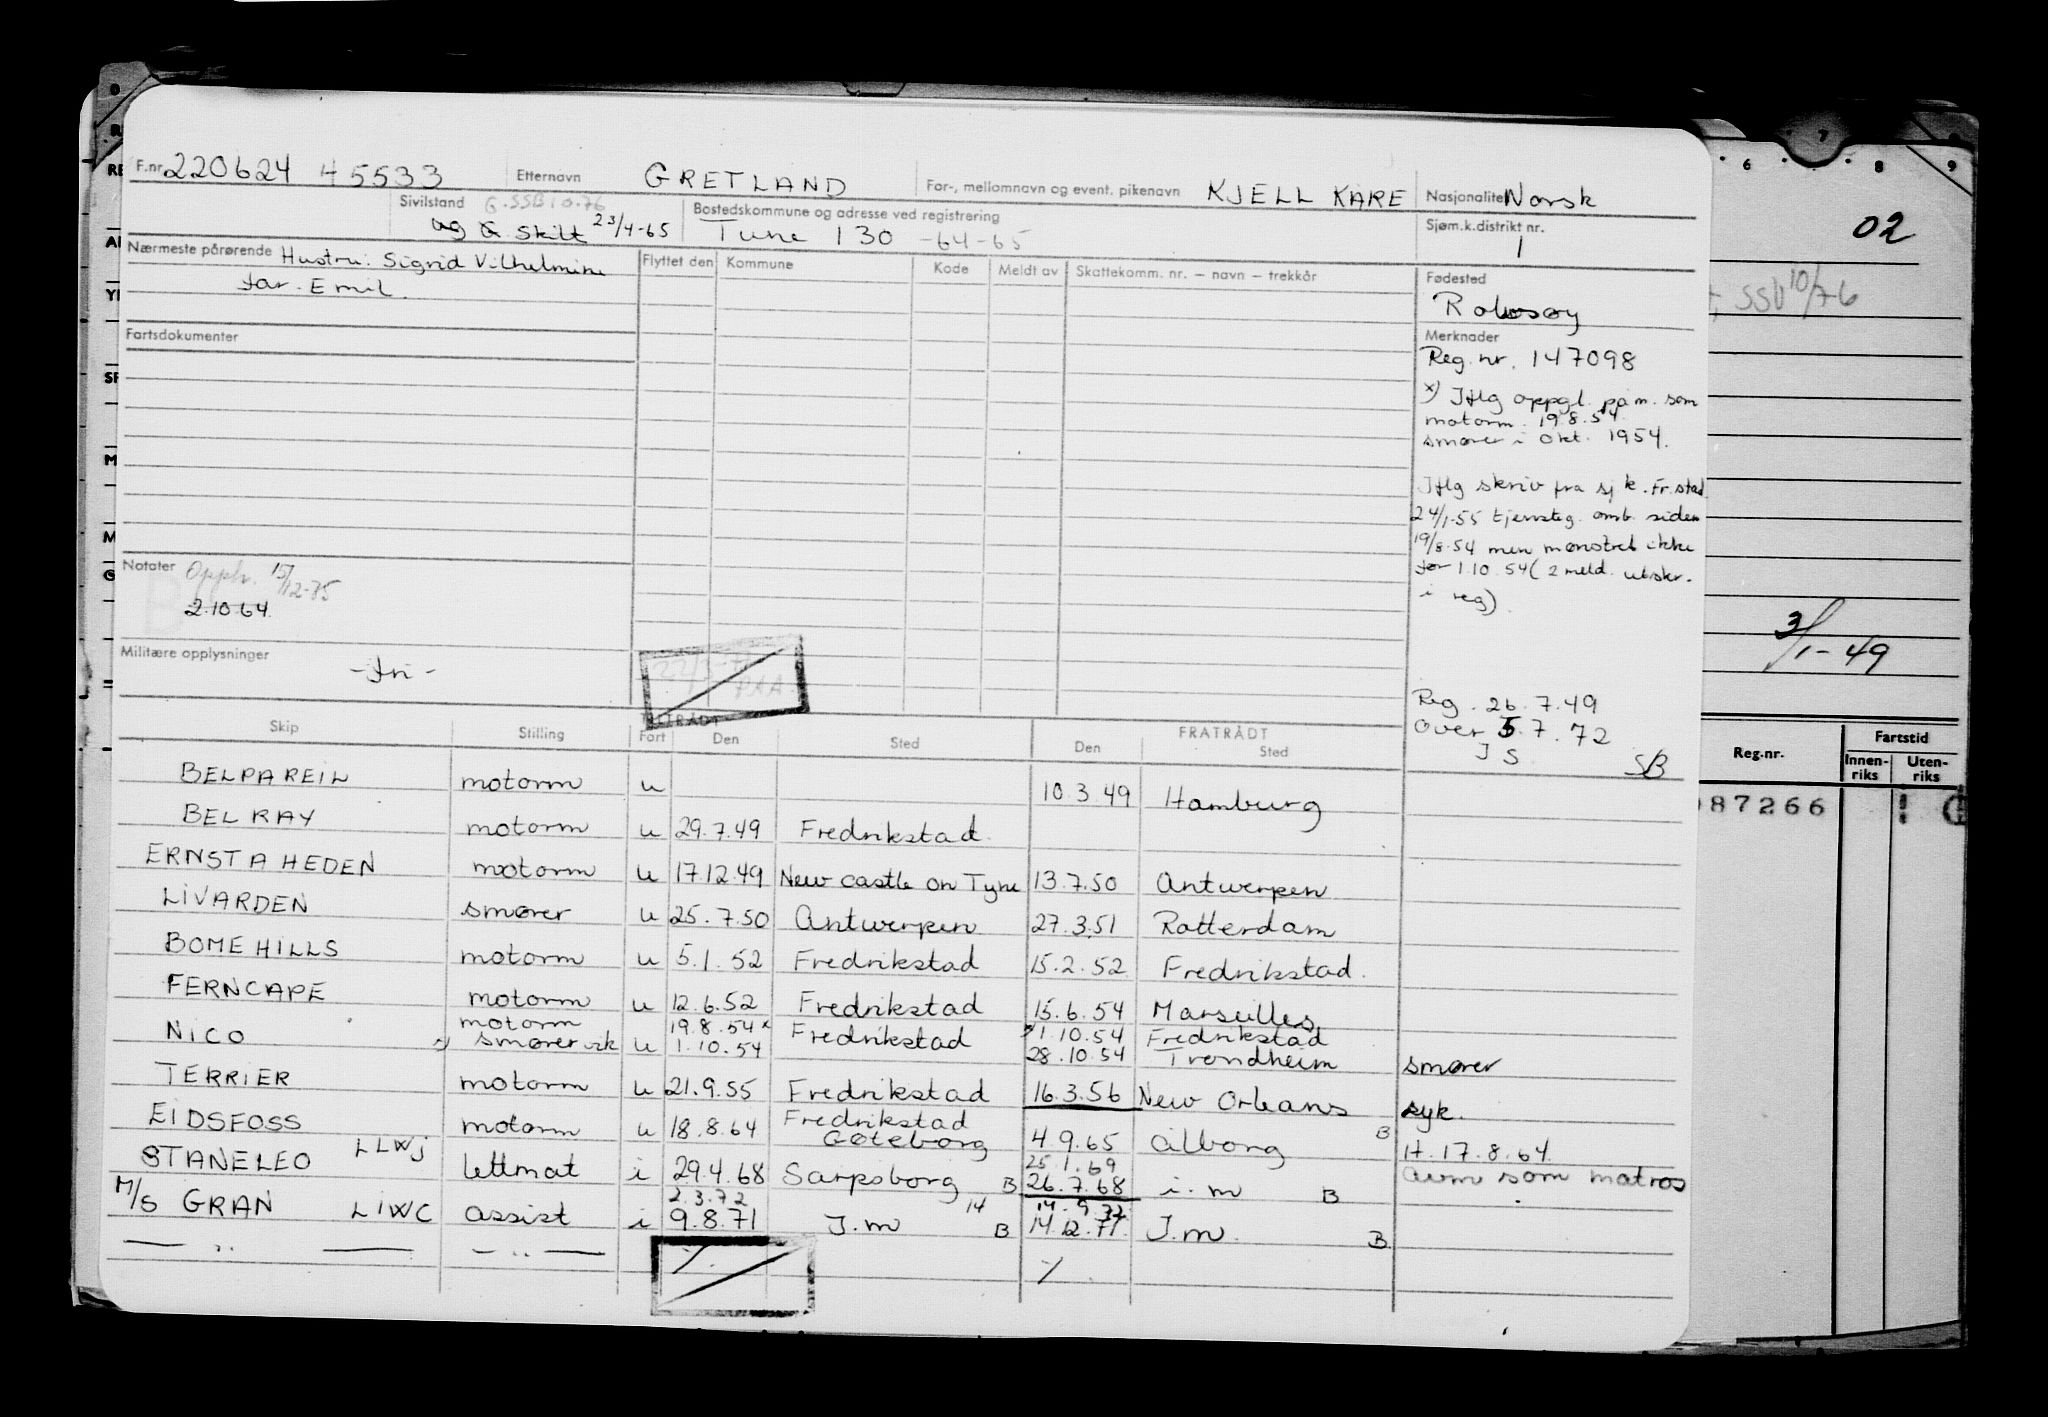 F.nr. 220624 45533 Etternavn GRETLAND For-, mellomnavn og event. pikenavn KJELL KÅRE Nasjonalitet Norsk
Sivilstand G. SSB 10.76
ug G skilt 23/4-65
Bostedskommune og adresse ved registrering
Tune 130 -64-65
Sjøm.k.distrikt nr.
1
Nærmeste pårørende Hustru: Sigrid Vilhelmine
far. Emil.
Flyttet den Kommune Kode Meldt av Skattekomm. nr. — navn — trekkår
Fødested
Rolvsøy
Fartsdokumenter
Merknader
Reg. nr. 147098
x) Iflg oppgl. påm. som
motorm. 19.8.54.
smører i okt. 1954.
Iflg skriv fra sj k. Fr.stad
24/1-55 tjensteg. omb. siden
19/8-54 men mønstret ikke
før 1.10.54 (2 meld. utskr.
i reg).
Notater Opph. 15/12-75
2.10.64.
Militære opplysninger
-fri-
Reg. 26.7.49
Over 5.7.72
JS
SB
Skip Stilling Fart TILTRÅDT Den Sted FRATRÅDT Den Sted
BELPAREIL motorm u 10.3.49 Hamburg
BEL RAY motorm u 29.7.49 Fredrikstad.
ERNST A HEDEN motorm u 17.12.49 New castle on Tyne 13.7.50 Antwerpen
LIVARDEN smører u 25.7.50 Antwerpen 27.3.51 Rotterdam
BOMEHILLS motorm u 5.1.52 Fredrikstad 15.2.52 Fredrikstad.
FERNCAPE motorm u 12.6.52 Fredrikstad 15.6.54 Marseilles
motorm 19.8.54 x Fredrikstad 1.10.54 Fredrikstad
NICO smører u 1.10.54 28.10.54 Trondheim smører
TERRIER motorm u 21.9.55 Fredrikstad 16.3.56 New Orleans syk.
EIDSFOSS motorm u 18.8.64 Fredrikstad
Gøteborg 4.9.65 Ålborg B H. 17.8.64.
25.1.69
STANELEO LLWJ lettmat i 29.4.68 Sarpsborg B 26.7.68 i.m B avm som matros
2.3.72 14 14.9.72
M/S GRAN LIWC assist i 9.8.71 I.m B 14.12.71 I.m. B
— " — — " — /. /.
02
SSB 10/76
3/1-49
Reg.nr. Fartstid
Innen-riks Uten-riks
87266